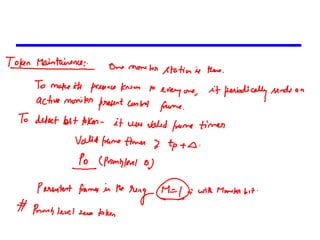 Token Maintainence:- One monitor station is there.
To make its presence known to everyone, it periodically sends an
active monitor present control frame.
To detect lost token- it uses valid frame timer
Valid frame timer ≥ tp + Δ.
P0 (Priority level 0)
Persistent frames in the ring (M=1) : with Monitor bit.
# Priority level zero token